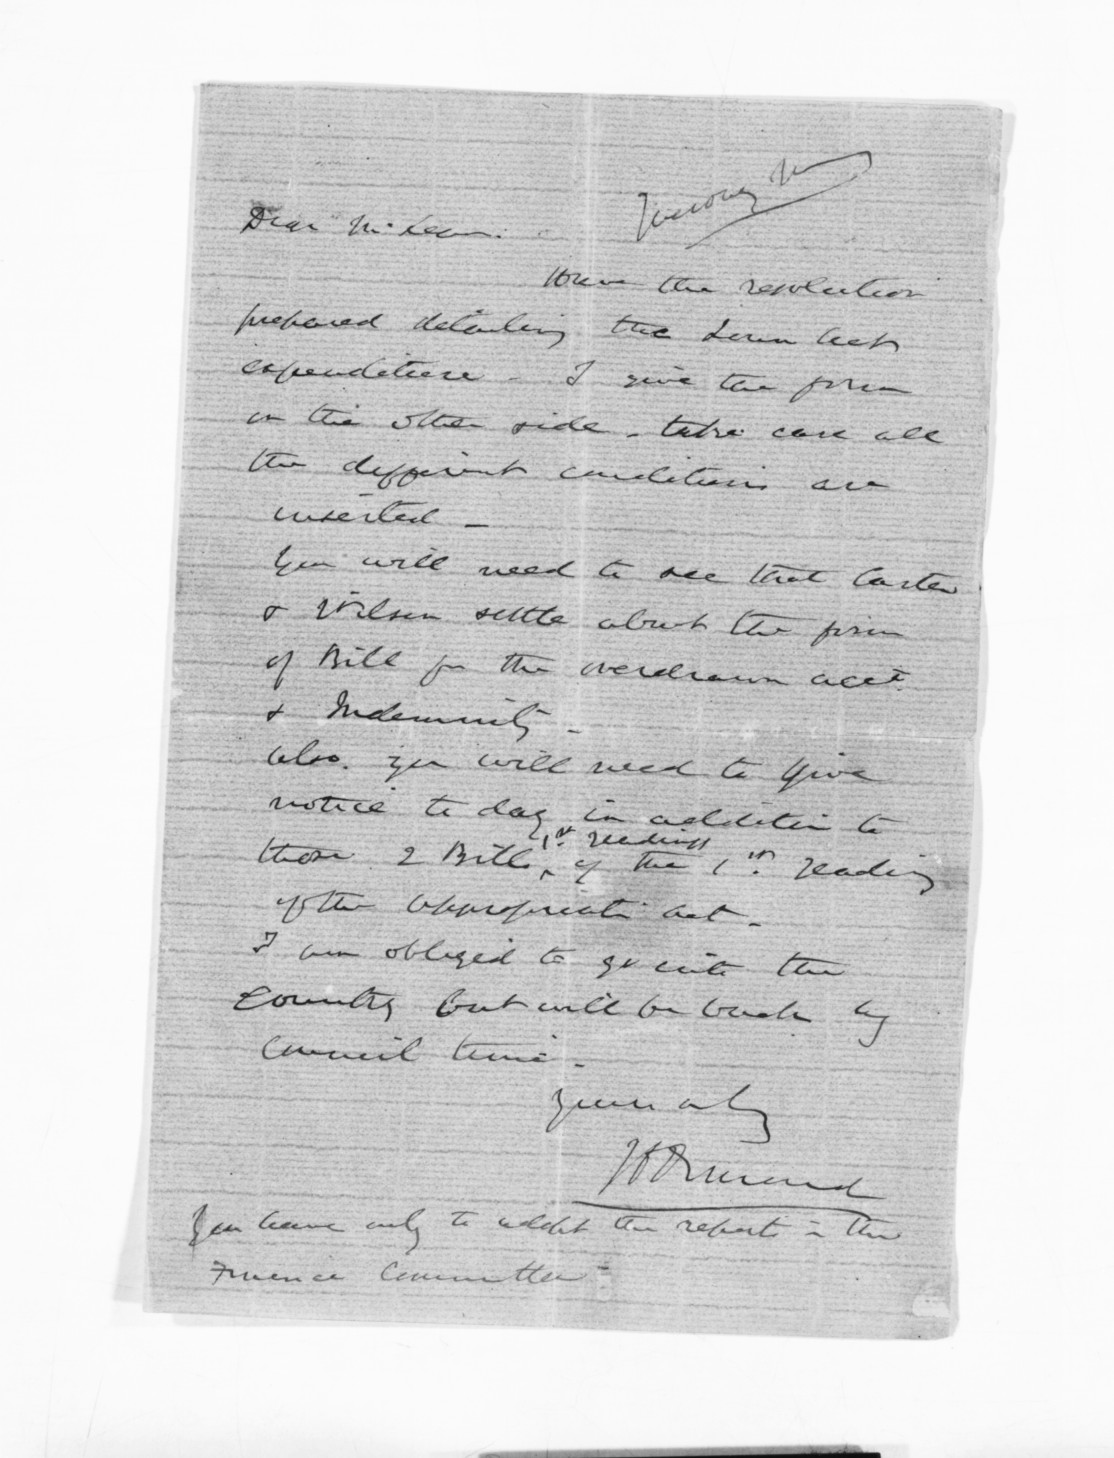 Dear McLean.
Have the resolution
prepared detailing the Loan act
expenditure - I give the form
on the other side - take care all
the different conditions are
inserted -
You will need to see that Carter
& Wilson settle about the form
of Bill for the overdrawn acct.
& Indemnity -
also. you will need to give
notice to day in addition to
1st readings
those 2 Bills, of the 1st. reading
of the appropriation act -
I am obliged to go into the
Country but will be back by
Council time -
Yours truly
J D Ormond
You have only to adopt the reports in the
Finance Committee -